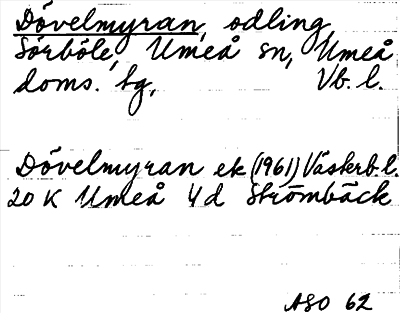 Dövelmyran, odling,
Sörböle, Umeå sn, Umeå
doms. tg, Vb. l.
Dövelmyran ek (1961) Västerb. l.
20 K Umeå 4d Strömbäck
ASO 62